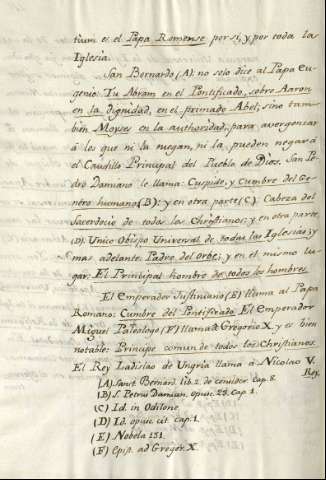 tium es el Papa Romense por si, y por toda la
Iglesia.
San Bernardo (A) no solo dice al Papa Eu-
genio: Tu Abram en el Pontificado, sobre Aaron
en la dignidad, en el primado Abel; sino tam-
bien Moyses en la authoridad, para avergonzar
á los que ni la niegan, ni la pueden negar á
el Caudillo Principal del Pueblo de Dios. San Pe-
dro Damiano le llama: Cuspide, y Cumbre del Ge-
nero humano (B): y en otra parte (C): Cabeza del
Sacerdocio de todos los Christianos; y en otra parte,
(D): Unico Obispo Universal de todas las Iglesias; y
mas adelante: Padre del Orbe; y en el mismo lu-
gar: El Principal hombre de todos los hombres.
El emperador Justiniano (E) llama al Papa
Romano: Cumbre del Pontificado. El emperador
Miguel Paleologo (F) llama á Gregorio X. y es bien
notable: Principe comun de todos los Christianos.
El Rey Ladislao de Ungria llama á Nicolao V.
Rey
(A) Sanct Bernard. lib. 2. de consider. cap. 8.
(B) S. Petrus Damian. opusc. 23. cap. 1.
(C) Id. in
(D) Id. opusc. cit. cap. 1.
(E) Nobela 131.
(F) Epist. ad Gregor. X.